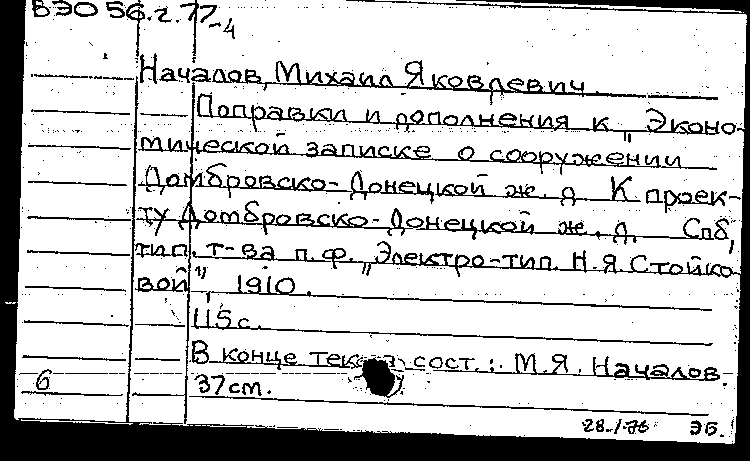 ВЭО 56.2.77-4
Началов, Михаил Яковлевич.
Поправки и дополнения к „Эконо-
мической записке о сооружении
Домбровско-Донецкой ж. д К проек-
ту Домбровско-Донецкой ж. д. Спб,
тип. т-ва п. ф. „Электро-тип. Н.Я. Стойко-
вой", 1910.
115 с.
В конце текста сост.: М.Я. Началов.
6 37 см.
28.1.76 ЭБ.